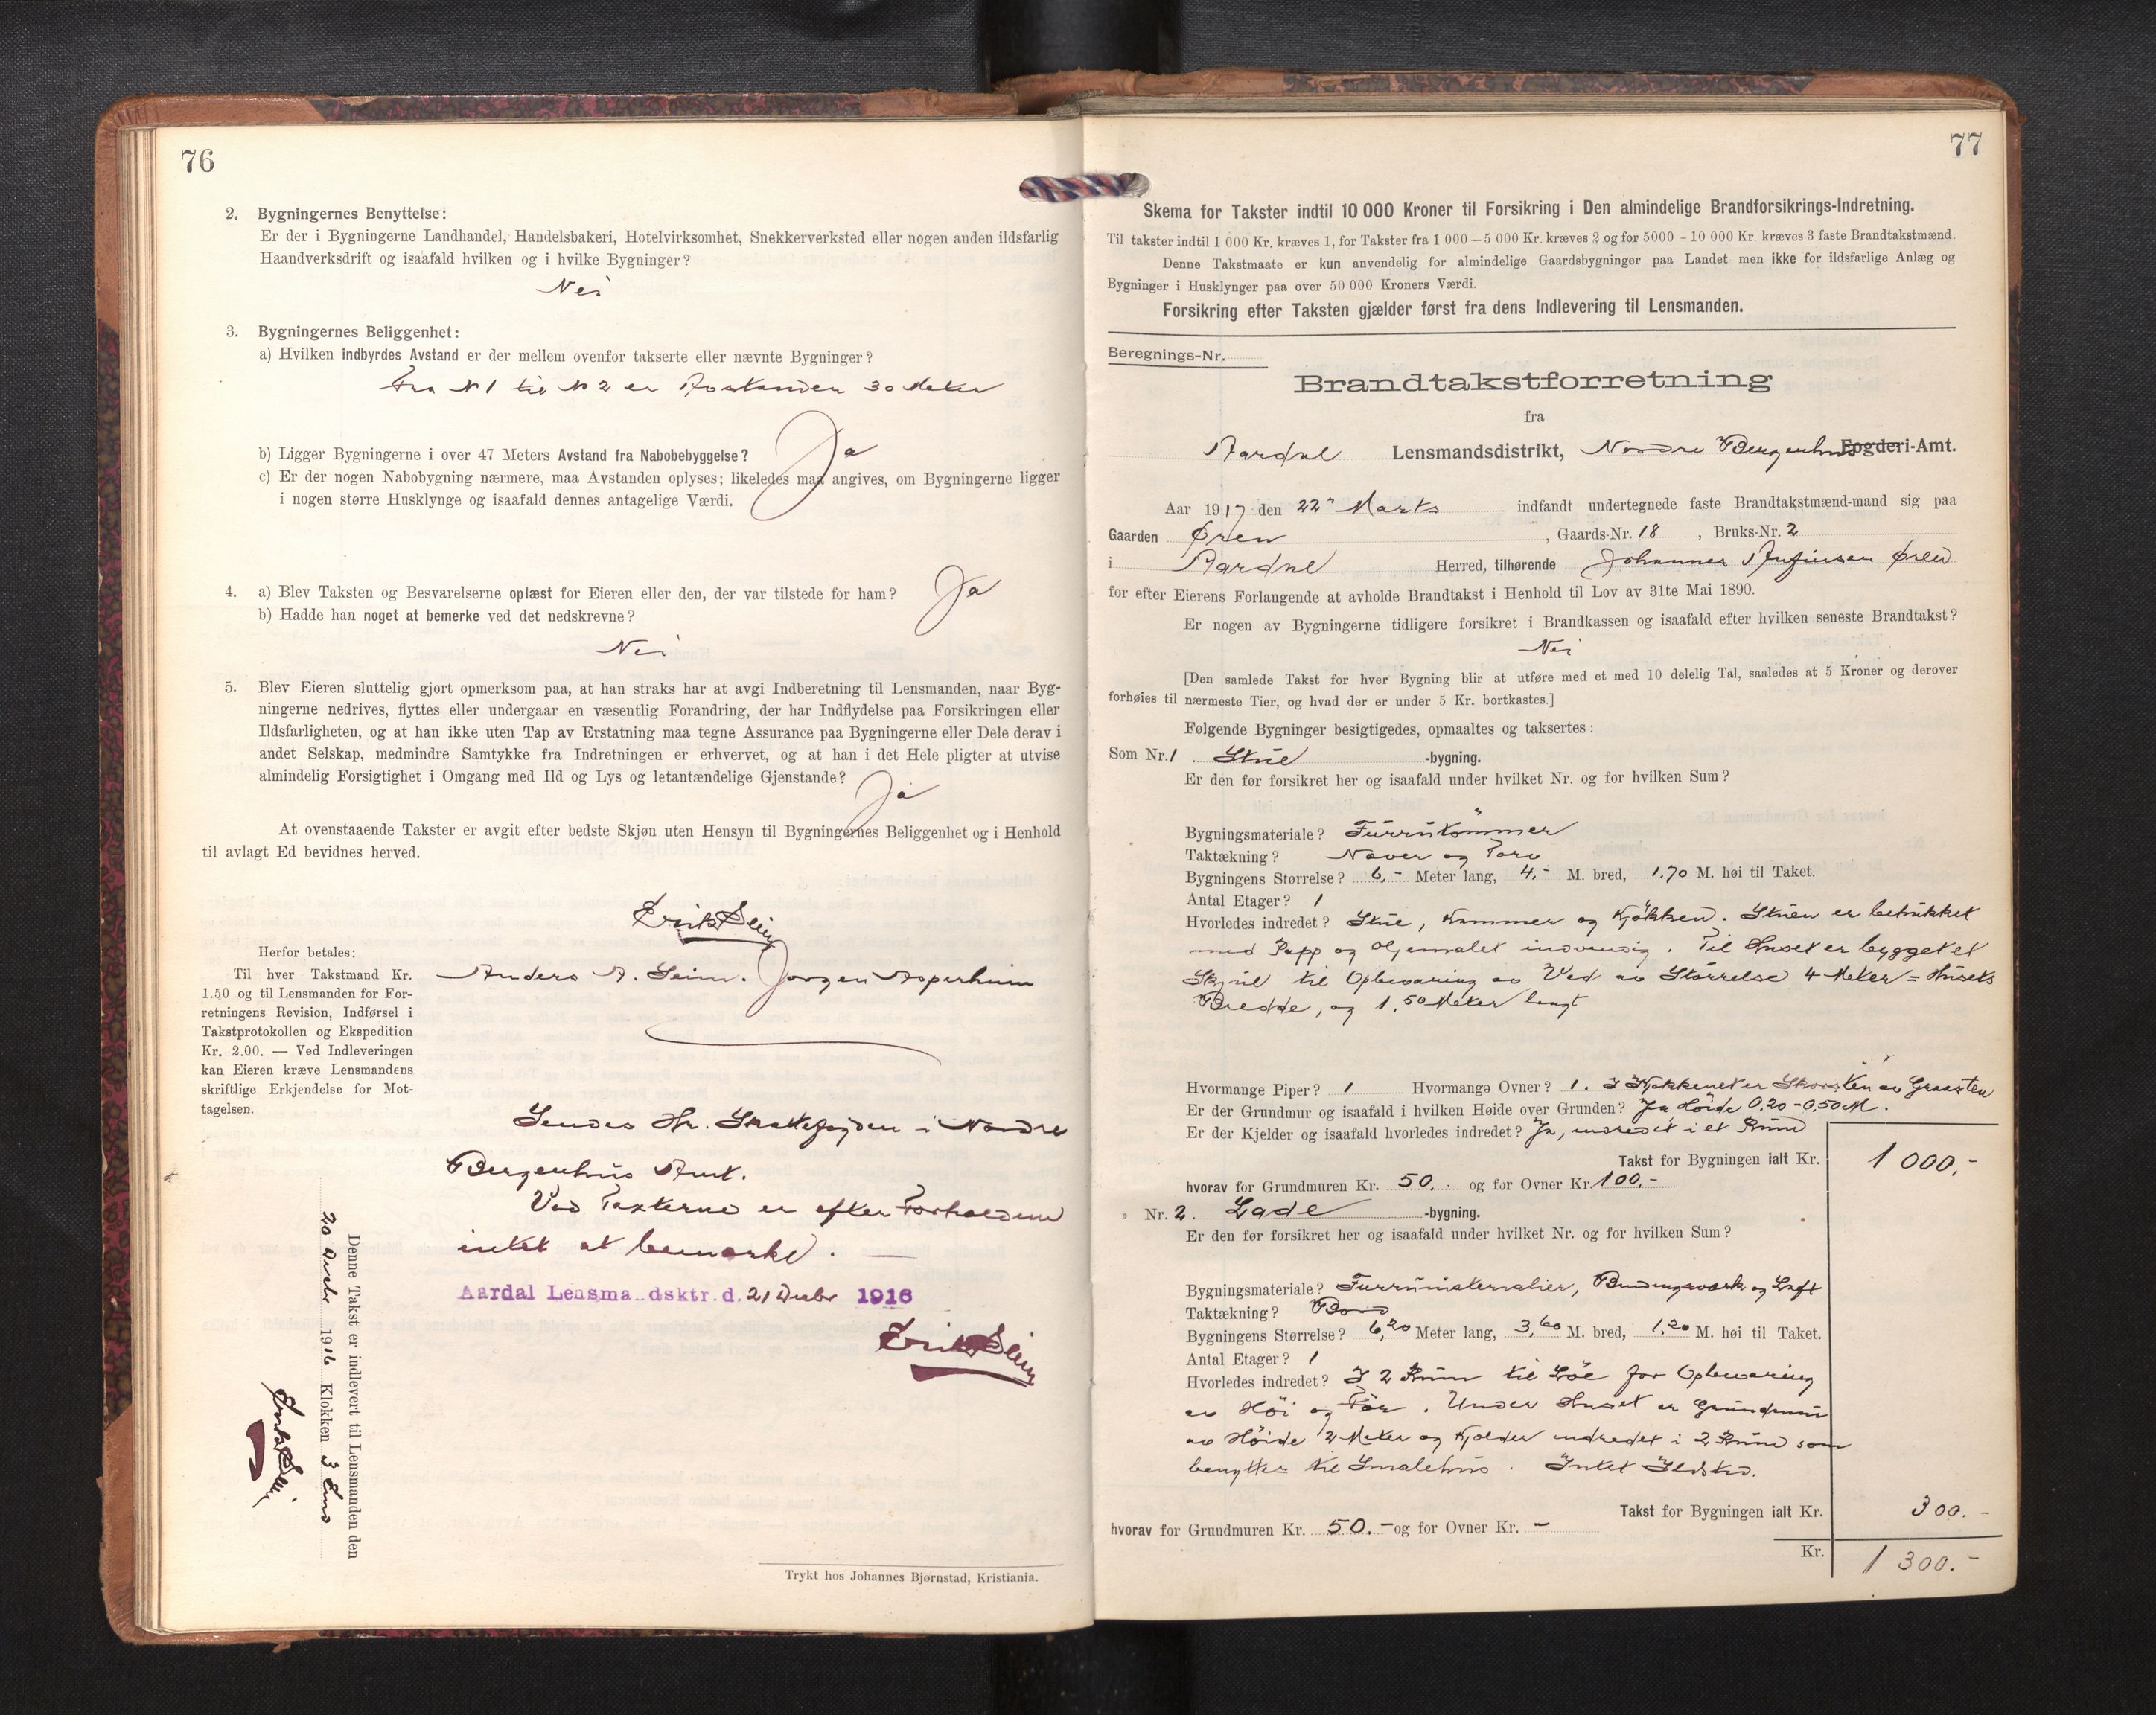 76
2. Bygningernes Benyttelse:
Er der i Bygningerne Landhandel, Handelsbakeri, Hotelvirksomhet, Snekkerverksted eller nogen anden ildsfarlig
Haandverksdrift og isaafald hvilken og i hvilke Bygninger?
Nei
3. Bygningernes Beliggenhet:
a) Hvilken indbyrdes Avstand er der mellem ovenfor takserte eller nævnte Bygninger?
Fra N 1 til N 2 er Avstanden 30 Meter
b) Ligger Bygningerne i over 47 Meters Avstand fra Nabobebyggelse? Ja
c) Er der nogen Nabobygning nærmere, maa Avstanden oplyses; likeledes maa angives, om Bygningerne ligger
i nogen større Husklynge og isaafald dennes antagelige Værdi.
4. a) Blev Taksten og Besvarelserne oplæst for Eieren eller den, der var tilstede for ham? Ja
b) Hadde han noget at bemerke ved det nedskrevne?
Nei
5. Blev Eieren sluttelig gjort opmerksom paa, at han straks har at avgi Indberetning til Lensmanden, naar Byg-
ningerne nedrives, flyttes eller undergaar en væsentlig Forandring, der har Indflydelse paa Forsikringen eller
Ildsfarligheten, og at han ikke uten Tap av Erstatning maa tegne Assurance paa Bygningerne eller Dele derav i
andet Selskap, medmindre Samtykke fra Indretningen er erhvervet, og at han i det Hele pligter at utvise
almindelig Forsigtighet i Omgang med Ild og Lys og letantændelige Gjenstande?
Ja
At ovenstaaende Takster er avgit efter bedste Skjøn uten Hensyn til Bygningernes Beliggenhet og i Henhold
til avlagt Ed bevidnes herved.
Erik Seim
Anders A. Seim. Jørgen Asperheim
Herfor betales:
Til hver Takstmand Kr.
1.50 og til Lensmanden for For-
retningens Revision, Indførsel i
Takstprotokollen og Ekspedition
Kr. 2.00. — Ved Indleveringen
kan Eieren kræve Lensmandens
skriftlige Erkjendelse for Mot-
tagelsen.
Sendes Hr. Skattefogden i Nordre
Bergenhus Amt.
Ved Taxterne er efter Forholdene
intet at bemærke. —
Aardal Lensma dsktr. d. 21 Decbr 1916
Erik Seim
Denne Takst er indlevert til Lensmanden den
20 Decbr 1916 Klokken 3 Em
Erik Seim
Trykt hos Johannes Bjørnstad, Kristiania.
77
Skema for Takster indtil 10 000 Kroner til Forsikring i Den almindelige Brandforsikrings-Indretning.
Til takster indtil 1 000 Kr. kræves 1, for Takster fra 1 000 – 5 000 Kr. kræves 2 og for 5000 - 10 000 Kr. kræves 3 faste Brandtakstmænd.
Denne Takstmaate er kun anvendelig for almindelige Gaardsbygninger paa Landet men ikke for ildsfarlige Anlæg og
Bygninger i Husklynger paa over 50 000 Kroners Værdi.
Forsikring efter Taksten gjælder først fra dens Indlevering til Lensmanden.
Beregnings-Nr.
Brandtakstforretning
fra
Aardal Lensmandsdistrikt, Nordre Bergenhus Fogderi-Amt.
Aar 1917 den 22" Marts indfandt undertegnede faste Brandtakstmænd-mand sig paa
Gaarden Øren, Gaards-Nr. 18, Bruks-Nr. 2
i Aardal Herred, tilhørende Johannes Anfinsen Øren
for efter Eierens Forlangende at avholde Brandtakst i Henhold til Lov av 31te Mai 1890.
Er nogen av Bygningerne tidligere forsikret i Brandkassen og isaafald efter hvilken seneste Brandtakst?
Nei
[Den samlede Takst for hver Bygning blir at utføre med et med 10 delelig Tal, saaledes at 5 Kroner og derover
forhøies til nærmeste Tier, og hvad der er under 5 Kr. bortkastes.]
Følgende Bygninger besigtigedes, opmaaltes og taksertes:
Som Nr. 1. Stue -bygning.
Er den før forsikret her og isaafald under hvilket Nr. og for hvilken Sum?
Bygningsmateriale? Furrutömmer
Taktækning? Næver og Torv
Bygningens Størrelse? 6,- Meter lang, 4,- M. bred, 1.70 M. høi til Taket.
Antal Etager? 1
Hvorledes indredet? Stue, Kammer og Kjøkken. Stuen er betrukket
med Papp og Oljemalet indvendig. Til Huset er bygget et
Skjul til Opbevaring av Ved av Størrelse 4 Meter = Husets
Bredde, og 1,50 Meter langt
Hvormange Piper? 1 Hvormange Ovner? 1. I Kjøkkenet er Skorsten av Graasten
Er der Grundmur og isaafald i hvilken Høide over Grunden? Ja Høide 0,20-0,50 M.
Er der Kjelder og isaafald hvorledes indredet? Ja, indredet i et Rum
Takst for Bygningen ialt Kr. 1 000,-
hvorav for Grundmuren Kr. 50. - og for Ovner Kr. 100,-
Nr. 2. Lade -bygning.
Er den før forsikret her og isaafald under hvilket Nr. og for hvilken Sum?
Bygningsmateriale? Furrumaterialier, Bindingsværk og Laft
Taktækning? Bord
Bygningens Størrelse? 6,20 Meter lang, 3,60 M. bred, 1,20 M. høi til Taket.
Antal Etager? 1
Hvorledes indredet? I 2 Rum til Löe for Opbevaring
av Høi og Før. Under Huset er Grundmur
av Høide 2 Meter og Kjelder indredet i 2 Rum som
benyttes til Smalehus. Intet Ildsted.
Takst for Bygningen ialt Kr. 300.-
hvorav for Grundmuren Kr. 50.- og for Ovner Kr. -
Kr. 1 300.-